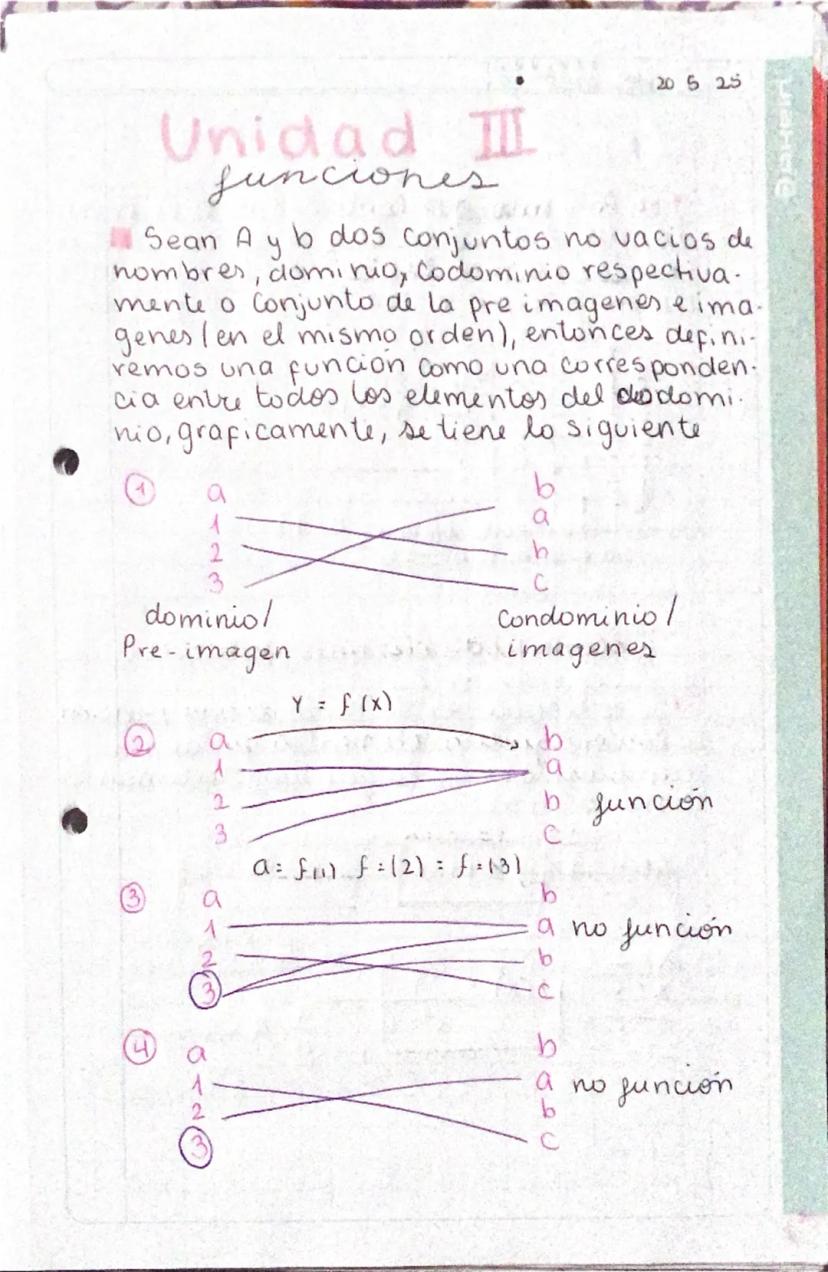 20 5 25
Unidad III
funciones
Sean A y b dos conjuntos no vacios de
nombres, dominio, codominio respectiva-
mente o conjunto de la pre imagenes e ima-
genes (en el mismo orden), entonces defini-
remos una función como una corresponden-
cia entre todos los elementos del dodomi-
nio, graficamente, se tiene lo siguiente
1 a b
1 a
2 b
3 c
dominio/ Condominio/
Pre-imagen imagenes
Y = f(x)
2 a b
1 a
2 b función
3 c
a = f(1) f=(2) = f=(3)
3 a b
1 a no función
2 b
3 c
4 a b
1 a no función
2 b
3 c